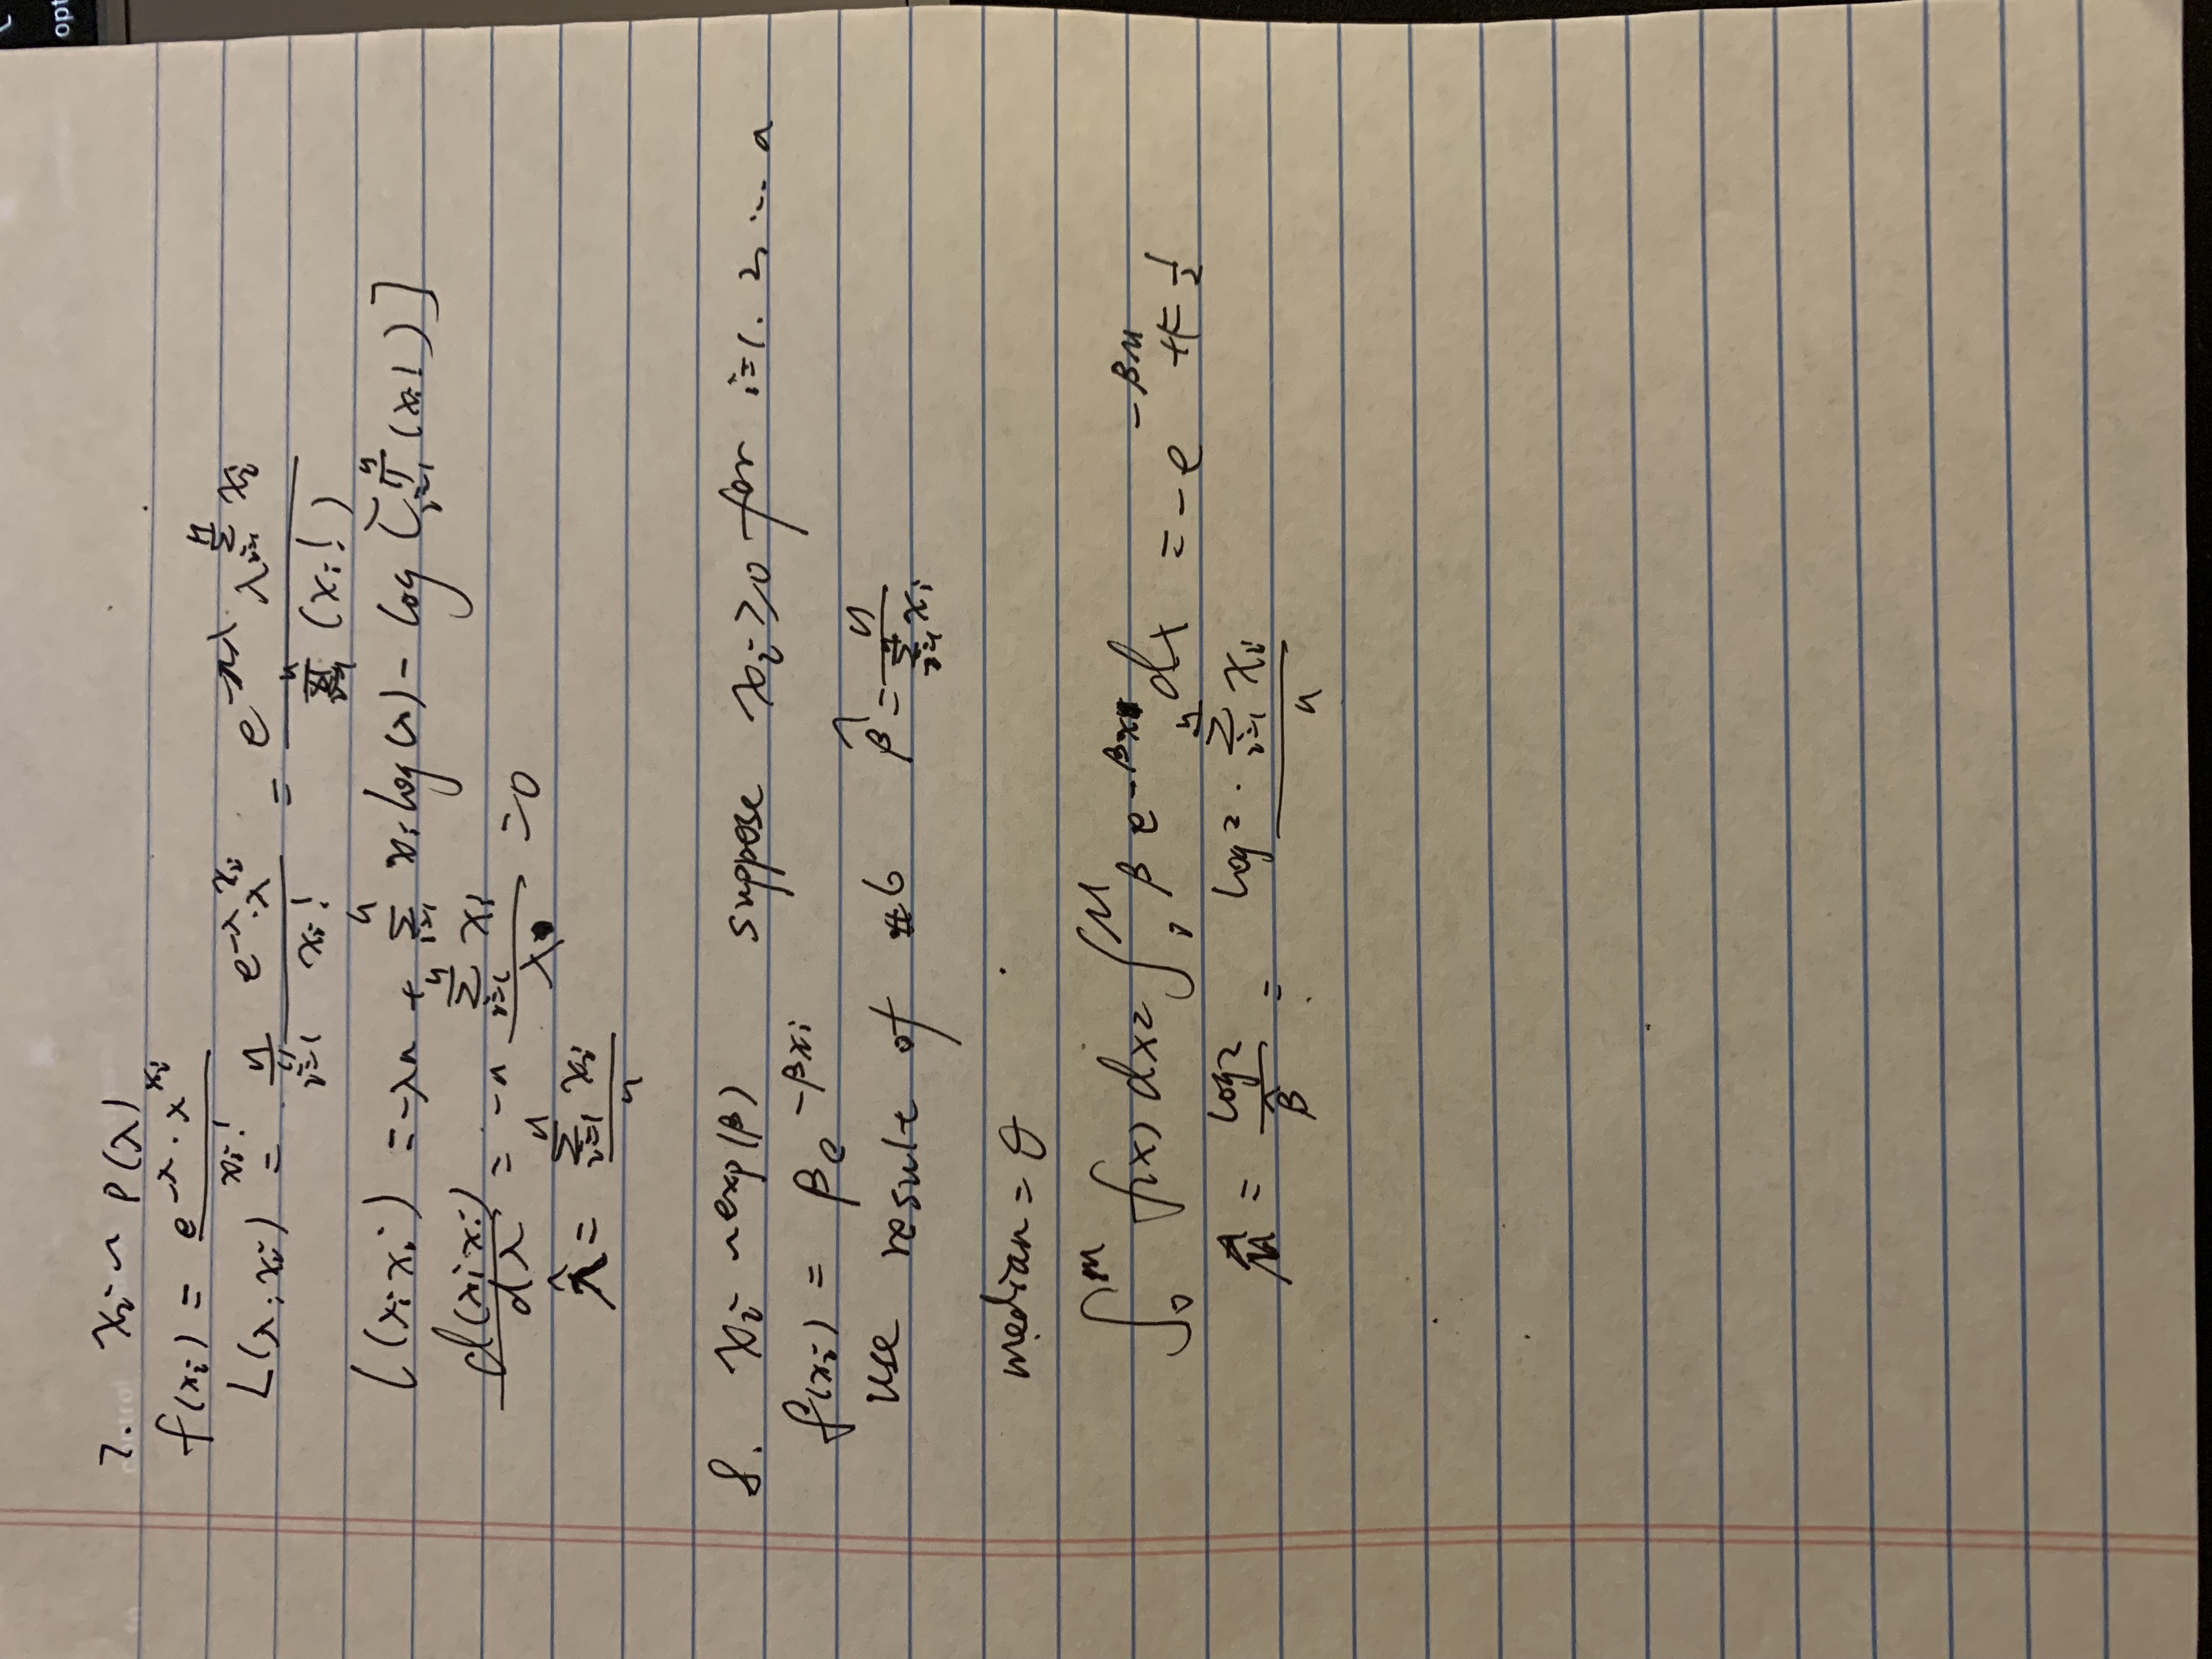 7. Xi ~ P(λ)
f(xi) = e^{-λ} · λ^{xi} / xi!
L(λ; xi) = ∏_{i=1}^{n} e^{-λ} · λ^{xi} / xi! = e^{-nλ} λ^{∑_{i=1}^{n} xi} / ∏_{i=1}^{n} (xi!)
l(λ; xi) = -λn + ∑_{i=1}^{n} xi log(λ) - log [∏_{i=1}^{n} (xi!)]
d(λ; xi) / dλ = -n ∑_{i=1}^{n} xi / λ = 0
λ̂ = ∑_{i=1}^{n} xi / n
8. Xi ~ exp(β) suppose xi ≥ 0 for i=1, 2, ... n
f(xi) = β e^{-βxi}
use result of #6 β̂ = n / ∑_{i=1}^{n} xi
median = θ
∫_0^M f(x) dx = ∫_0^M β e^{-βx} dx = -e^{-βM} + 1 = 1/2
M̂ = log2 / β̂ = log2 · ∑_{i=1}^{n} xi / n
opt